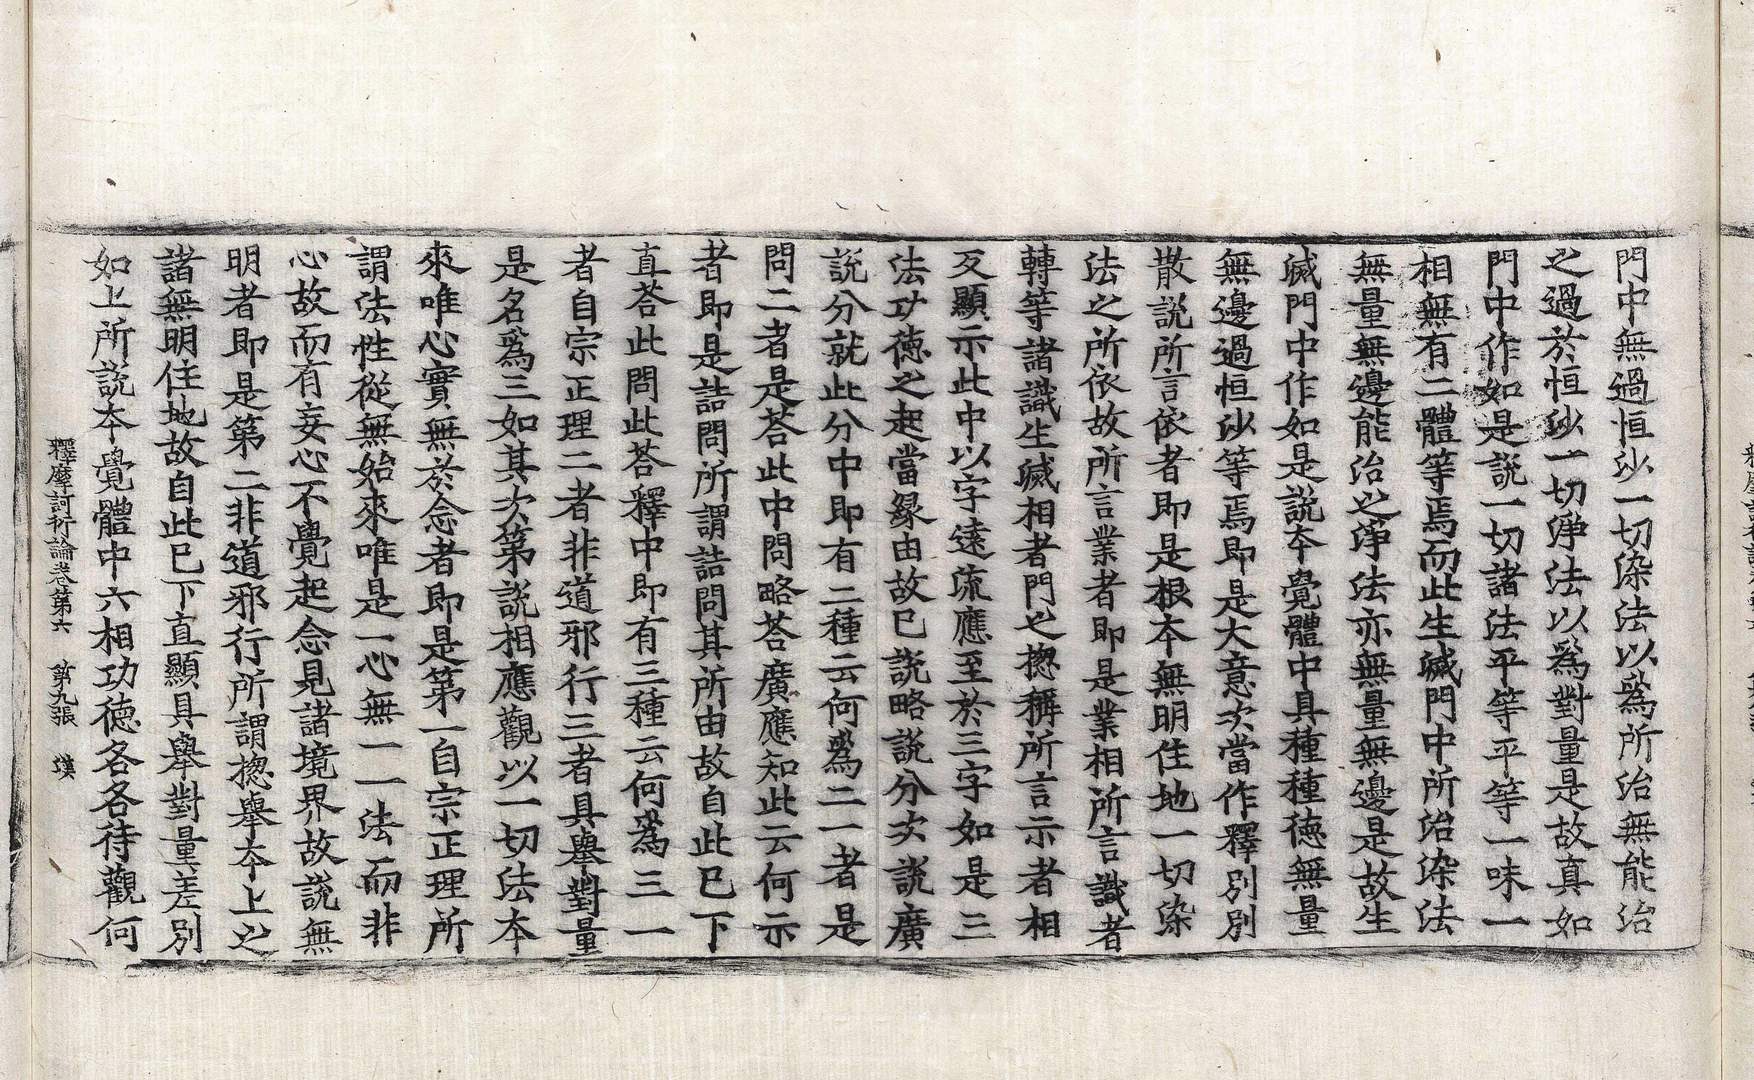 門中無過恒沙一切染法以爲所治無能治
之過於恒沙一切淨法以爲對量是故真如
門中作如是說一切諸法平等平等一味一
相無有二體等焉而此生滅門中所治染法
無量無邊能治之淨法亦無量無邊是故生
滅門中作如是說本覺體中具種種德無量
無邊過恒沙等焉即是大意次當作釋別別
散說所言依者即是根本無明住地一切染
法之所依故所言業者即是業相所言識者
轉等諸識生滅相者門也揔稱所言示者相
及顯示此中以字遠流應至於三字如是三
法功德之起當緣由故已說略說分次說廣
說分就此分中即有二種云何爲二一者是
問二者是荅此中問略荅廣應知此云何示
者即是詰問所謂詰問其所由故自此已下
直荅此問此荅釋中即有三種云何爲三一
者自宗正理二者非道邪行三者具舉對量
是名爲三如其次第說相應觀以一切法本
來唯心實無於念者即是第一自宗正理所
謂法性從無始來唯是一心無一一法而非
心故而有妄心不覺起念見諸境界故說無
明者即是第二非道邪行所謂揔舉本上之
諸無明住地故自此已下直顯具舉對量差別
如上所說本覺體中六相功德各各待觀何
釋摩訶衍論卷第六　第九張　漢